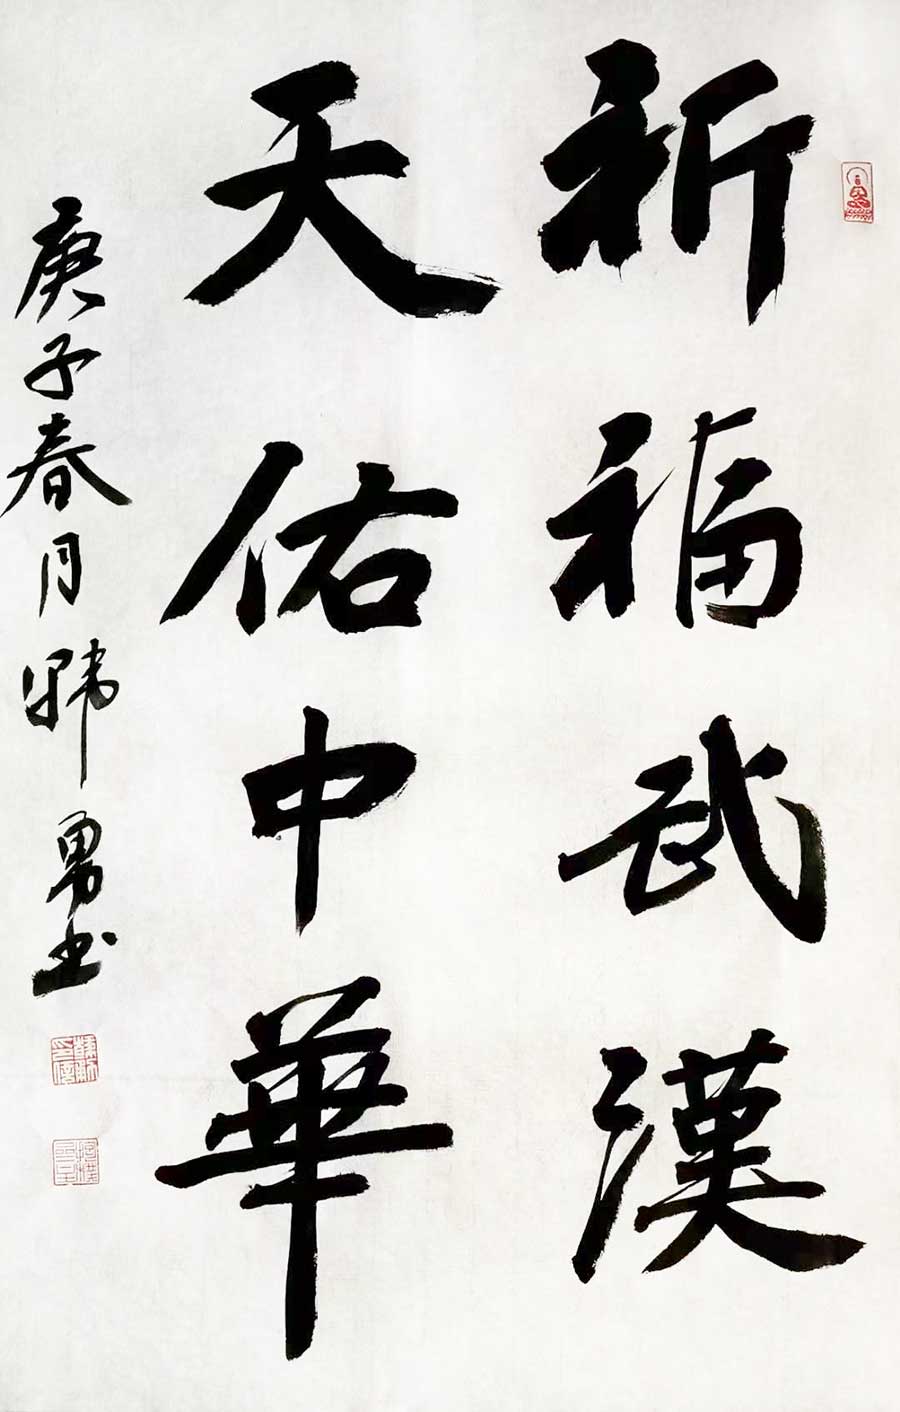 祈福武漢
天佑中華
庚子春月韩勇书